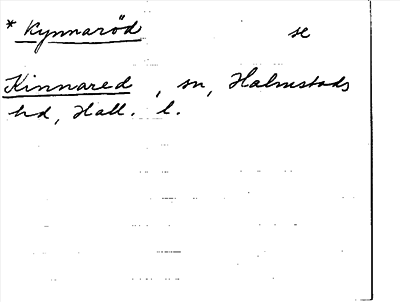 * Kynnaröd se
Kinnared, sn, Halmstads
hd, Hall. l.